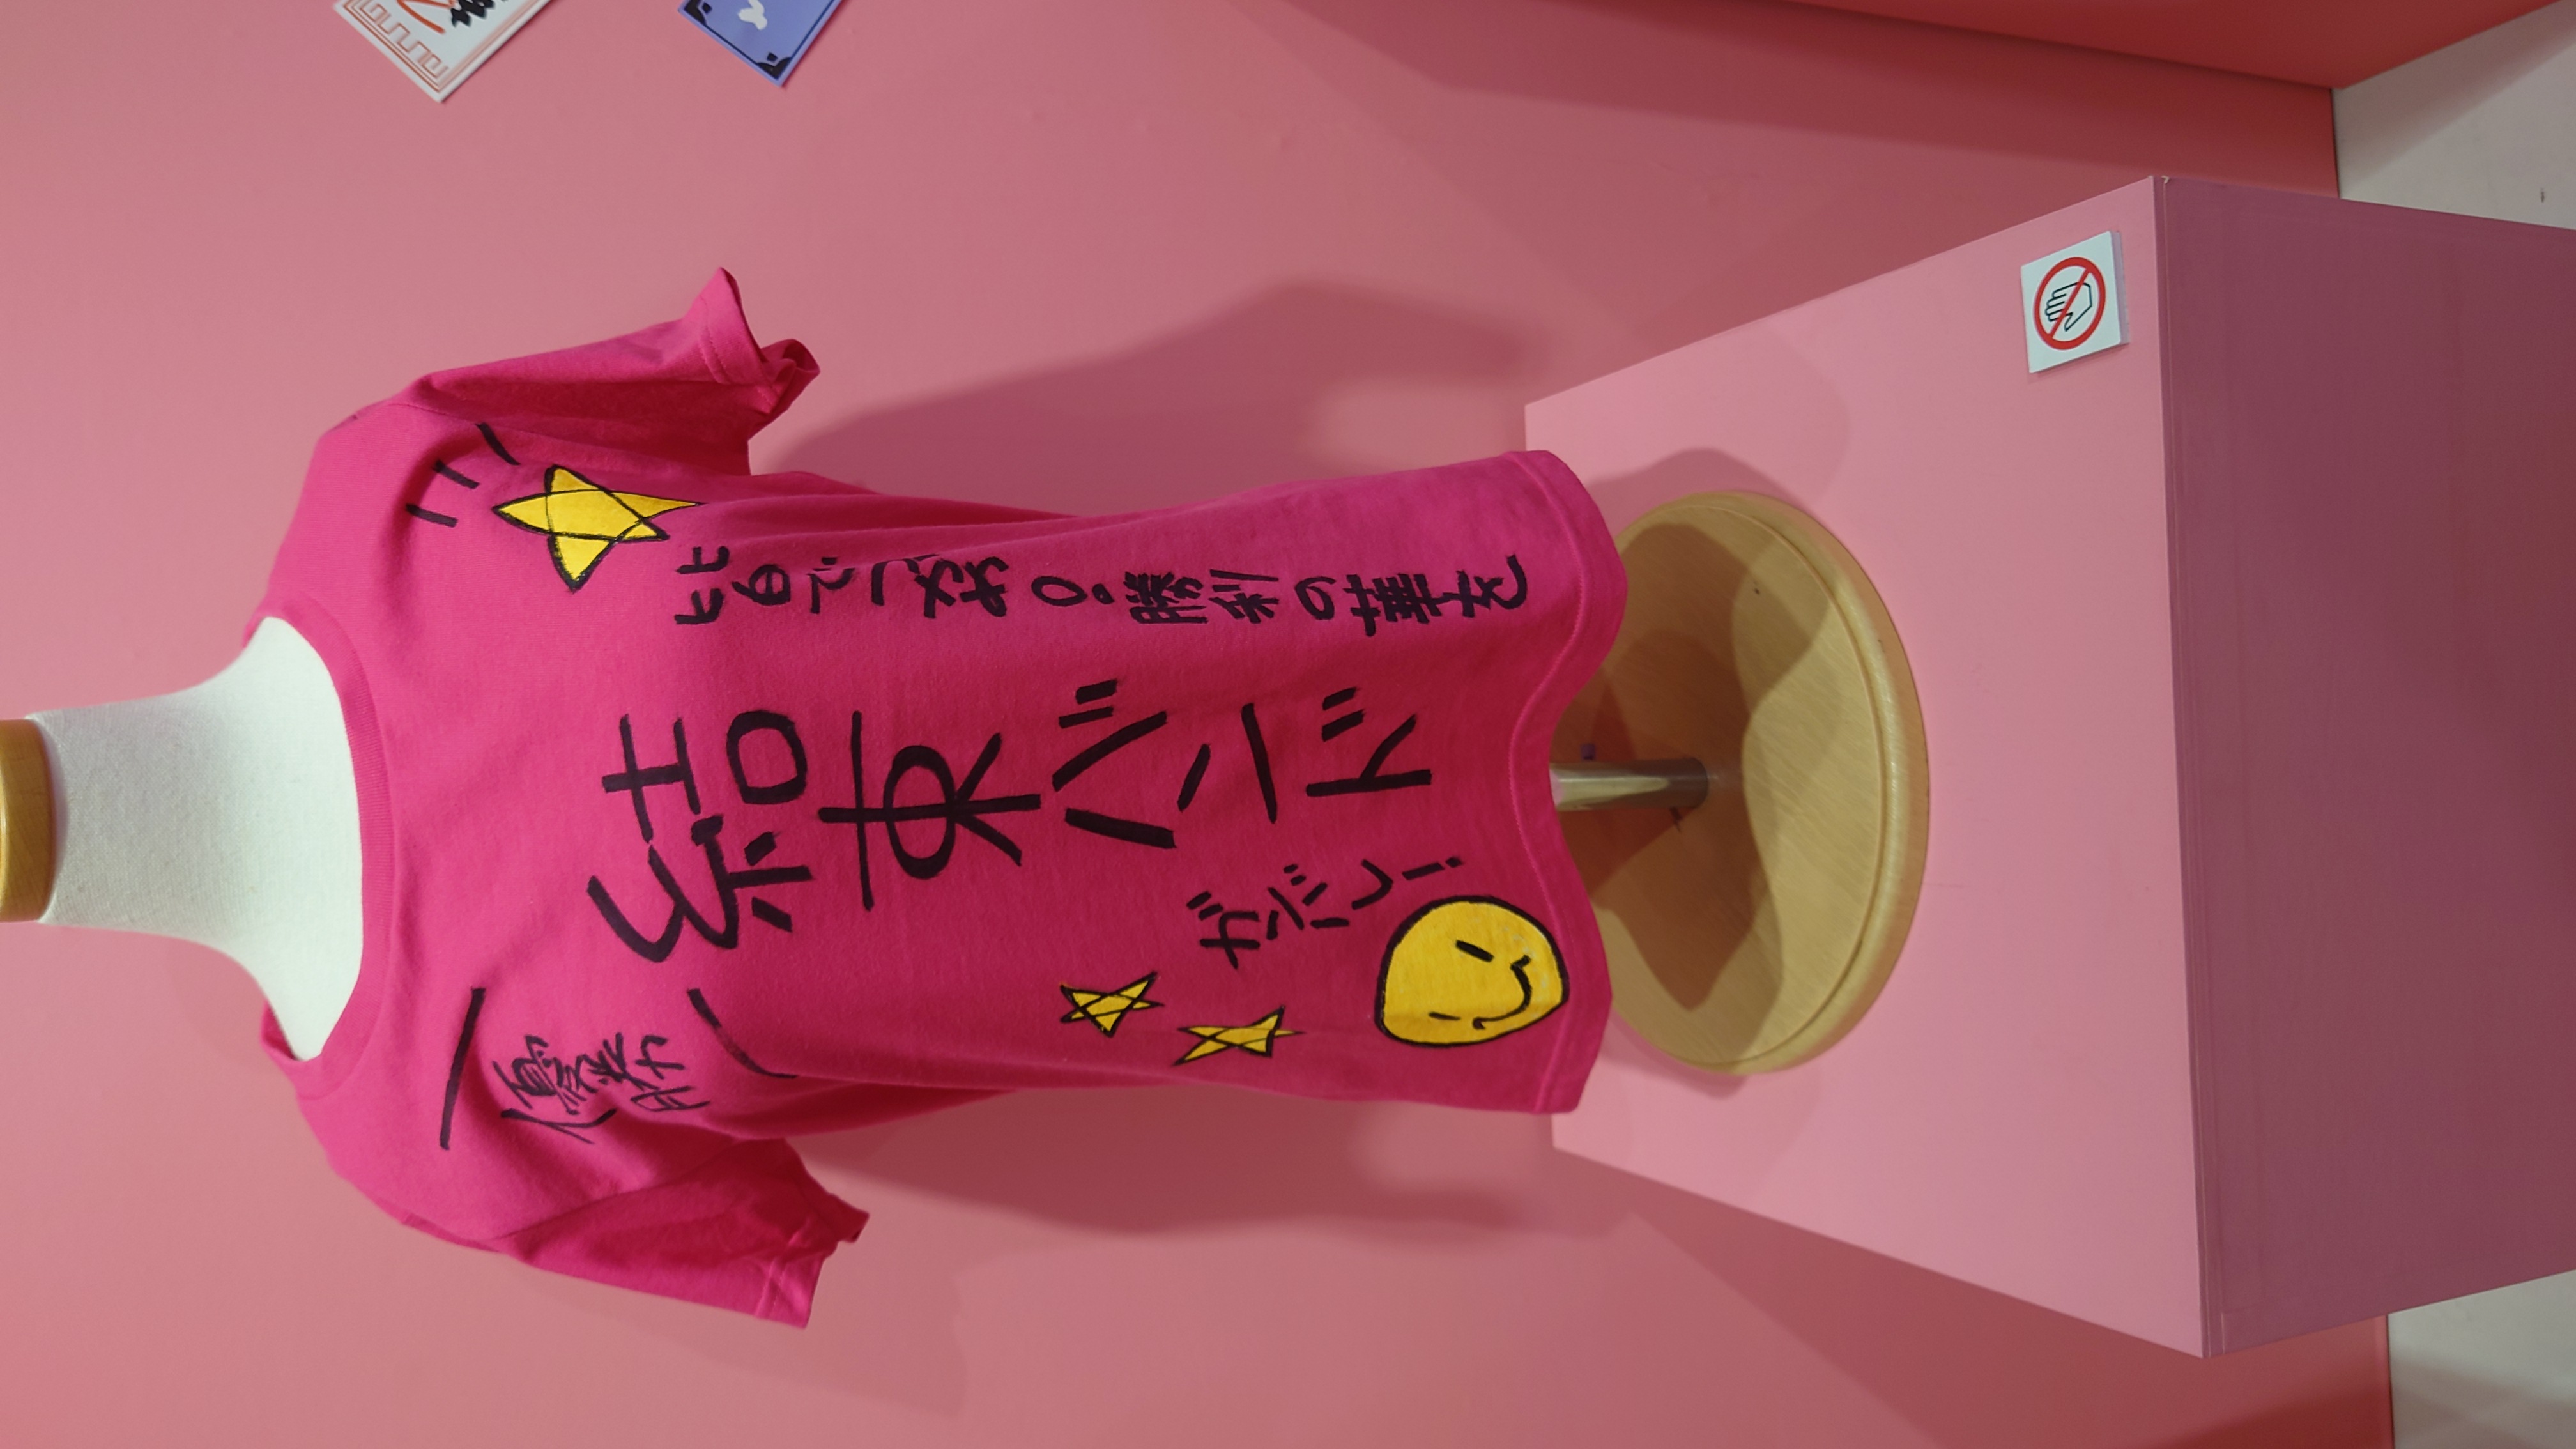 皆でつかめ!勝利の華を
結束バンド
優勝
ガンバレ!